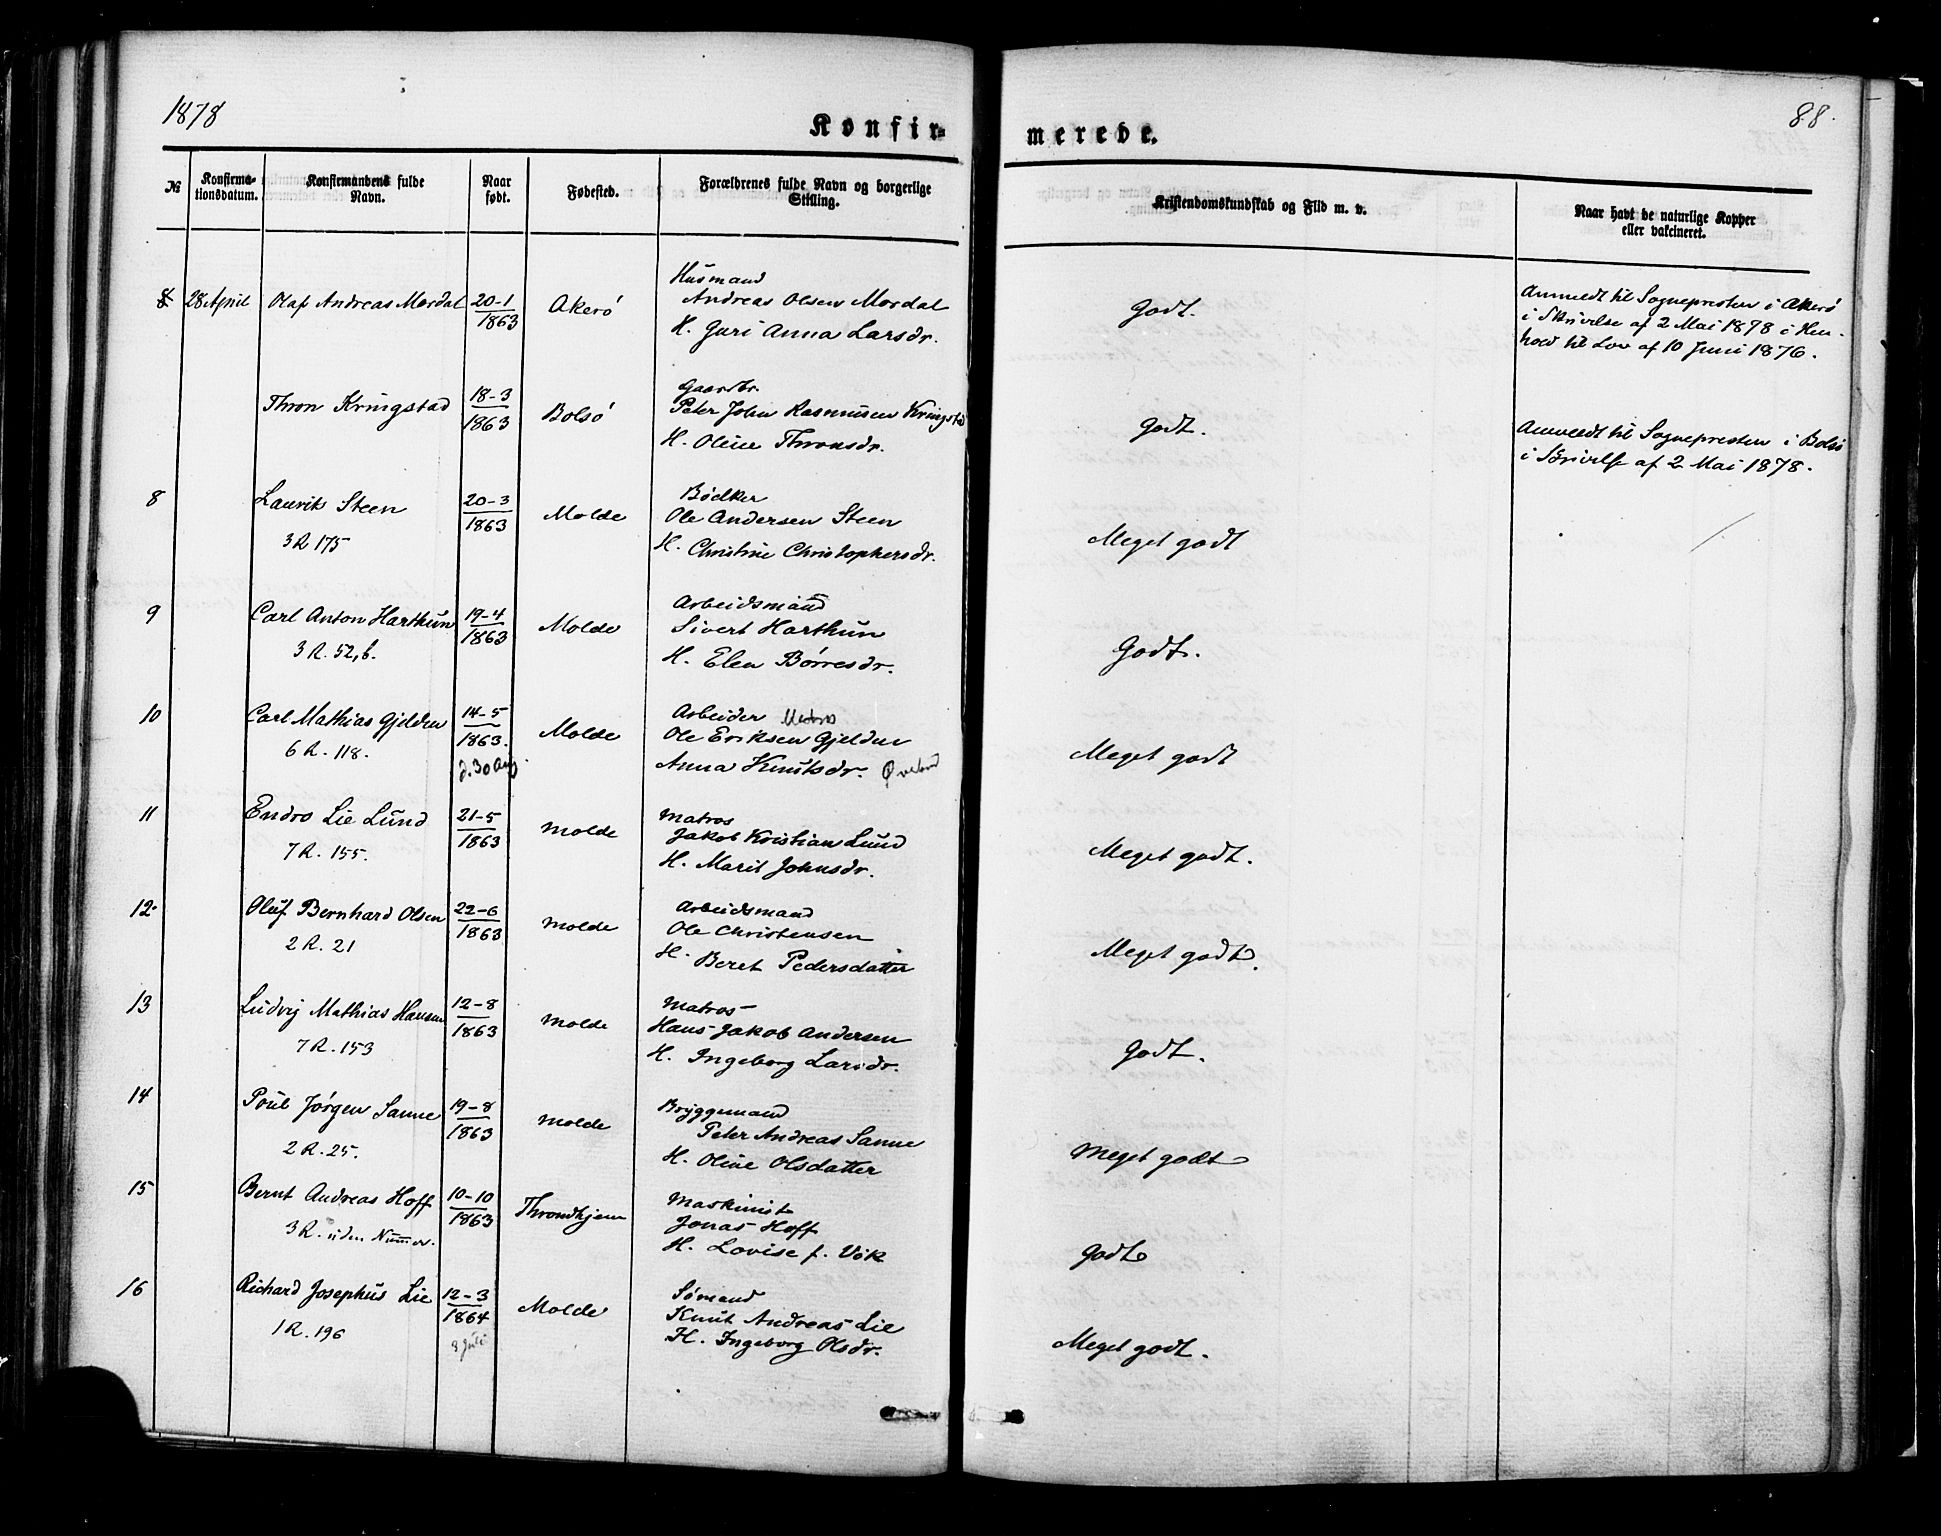 1878
88.
Konfirmerede.
№ Konfirmationsdatum. Konfirmandens fulde Navn. Naar født. Fødested. Forældrenes fulde Navn og borgerlige Stilling. Kristendomskundskab og Flid m. v. Naar havt de naturlige Kopper eller vakcineret.
28 April Olaf Andreas Mordal 20-1 1863 Akerö
Husmand
Andreas Olsen Mordal
H. Guri Anna Larsdr.
Godt.
Anmeldt til Sognepresten i Akerö
i Skrivelse af 2 Mai 1878 i Hen-
hold til Lov af 10 Juni 1876.
Thron Kringstad 18-3 1863 Bolsö
Gaardbr.
Peter John Rasmusen Kringstad
H. Oline Thronsdr.
Godt.
Anmeldt til Sognepresten i Bolsö
i Skrivelse af 2 Mai 1878.
8 Laurits Steen 20-3 1863 Molde
3 R 175
Bödker
Ole Andersen Steen
H. Christine Christophersdr.
Meget godt
9 Carl Anton Harthun 19-4 1863 Molde
3 R. 52, b.
Arbeidsmand
Sivert Harthun
H. Elen Børresdr.
Godt.
10 Carl Mathias Gjelden 14-5 1863. Molde
6 R. 118.
d. 30 Aug
Arbeider Matros
Ole Eriksen Gjelden
Anna Knutsdr.
Meget godt
11 Endro Lie Lund 21-5 1863 Molde
7 R. 155.
Matros
Jakob Kristian Lund
H. Marit Johnsdr.
Meget godt.
12. Oluf Bernhard Olsen 22-6 1863 Molde
2 R. 21
Arbeidsmand
Ole Christensen
H. Beret Pedersdatter
Meget godt.
13 Ludvig Mathias Hansen 12-8 1863 Molde
7 R. 153
Matros
Hans Jakob Andersen
H. Ingeborg Larsdr.
Godt.
14 Poul Jørgen Sanne 19-8 1863 Molde
2 R. 25.
Bryggemand
Peter Andreas Sanne
H. Oline Olsdatter
Meget godt
15 Bernt Andreas Hoff 10-10 1863 Throndhjem
3 R. uden Nummer.
Maskinist
Jonas Hoff
H. Lovise f. Vök
Godt
16 Richard Josephus Lie 12-3 1864 Molde
1 R. 196
8 Juli
Sømand
Knut Andreas Lie
H. Ingeborg Olsdr.
Meget godt.